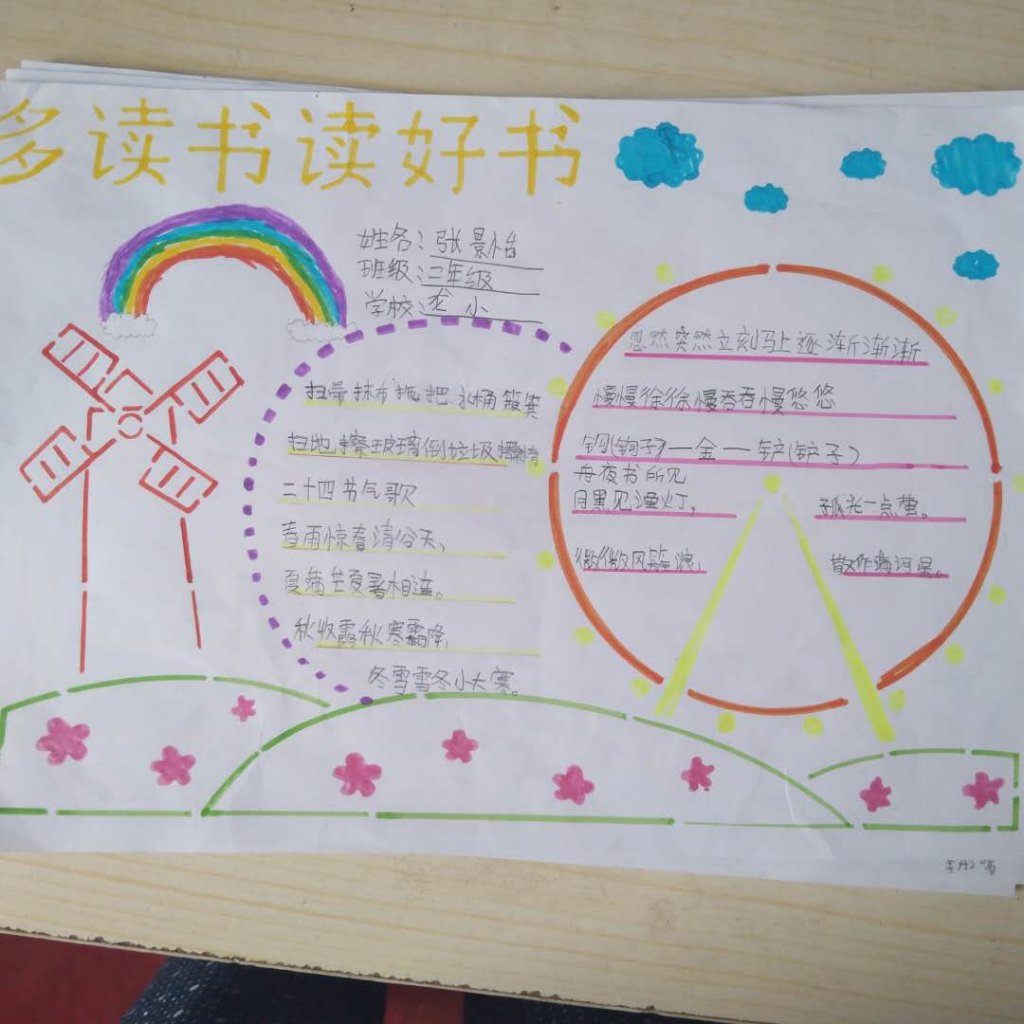 多读书读好书
姓名：张景怡
班级：二年级
学校：龙小
扫帚抹布拖把水桶簸箕
扫地擦玻璃倒垃圾
二十四节气歌
春雨惊春清谷天，
夏满芒夏暑相连。
秋收露秋寒霜降，
冬雪雪冬小大寒。
忽然突然立刻马上逐渐渐渐
慢慢徐徐慢吞吞慢悠悠
钩(钩子)一金一铲(铲子)
舟夜书所见
月黑见渔灯，
孤光一点萤。
微微风簇浪，
散作满河星。